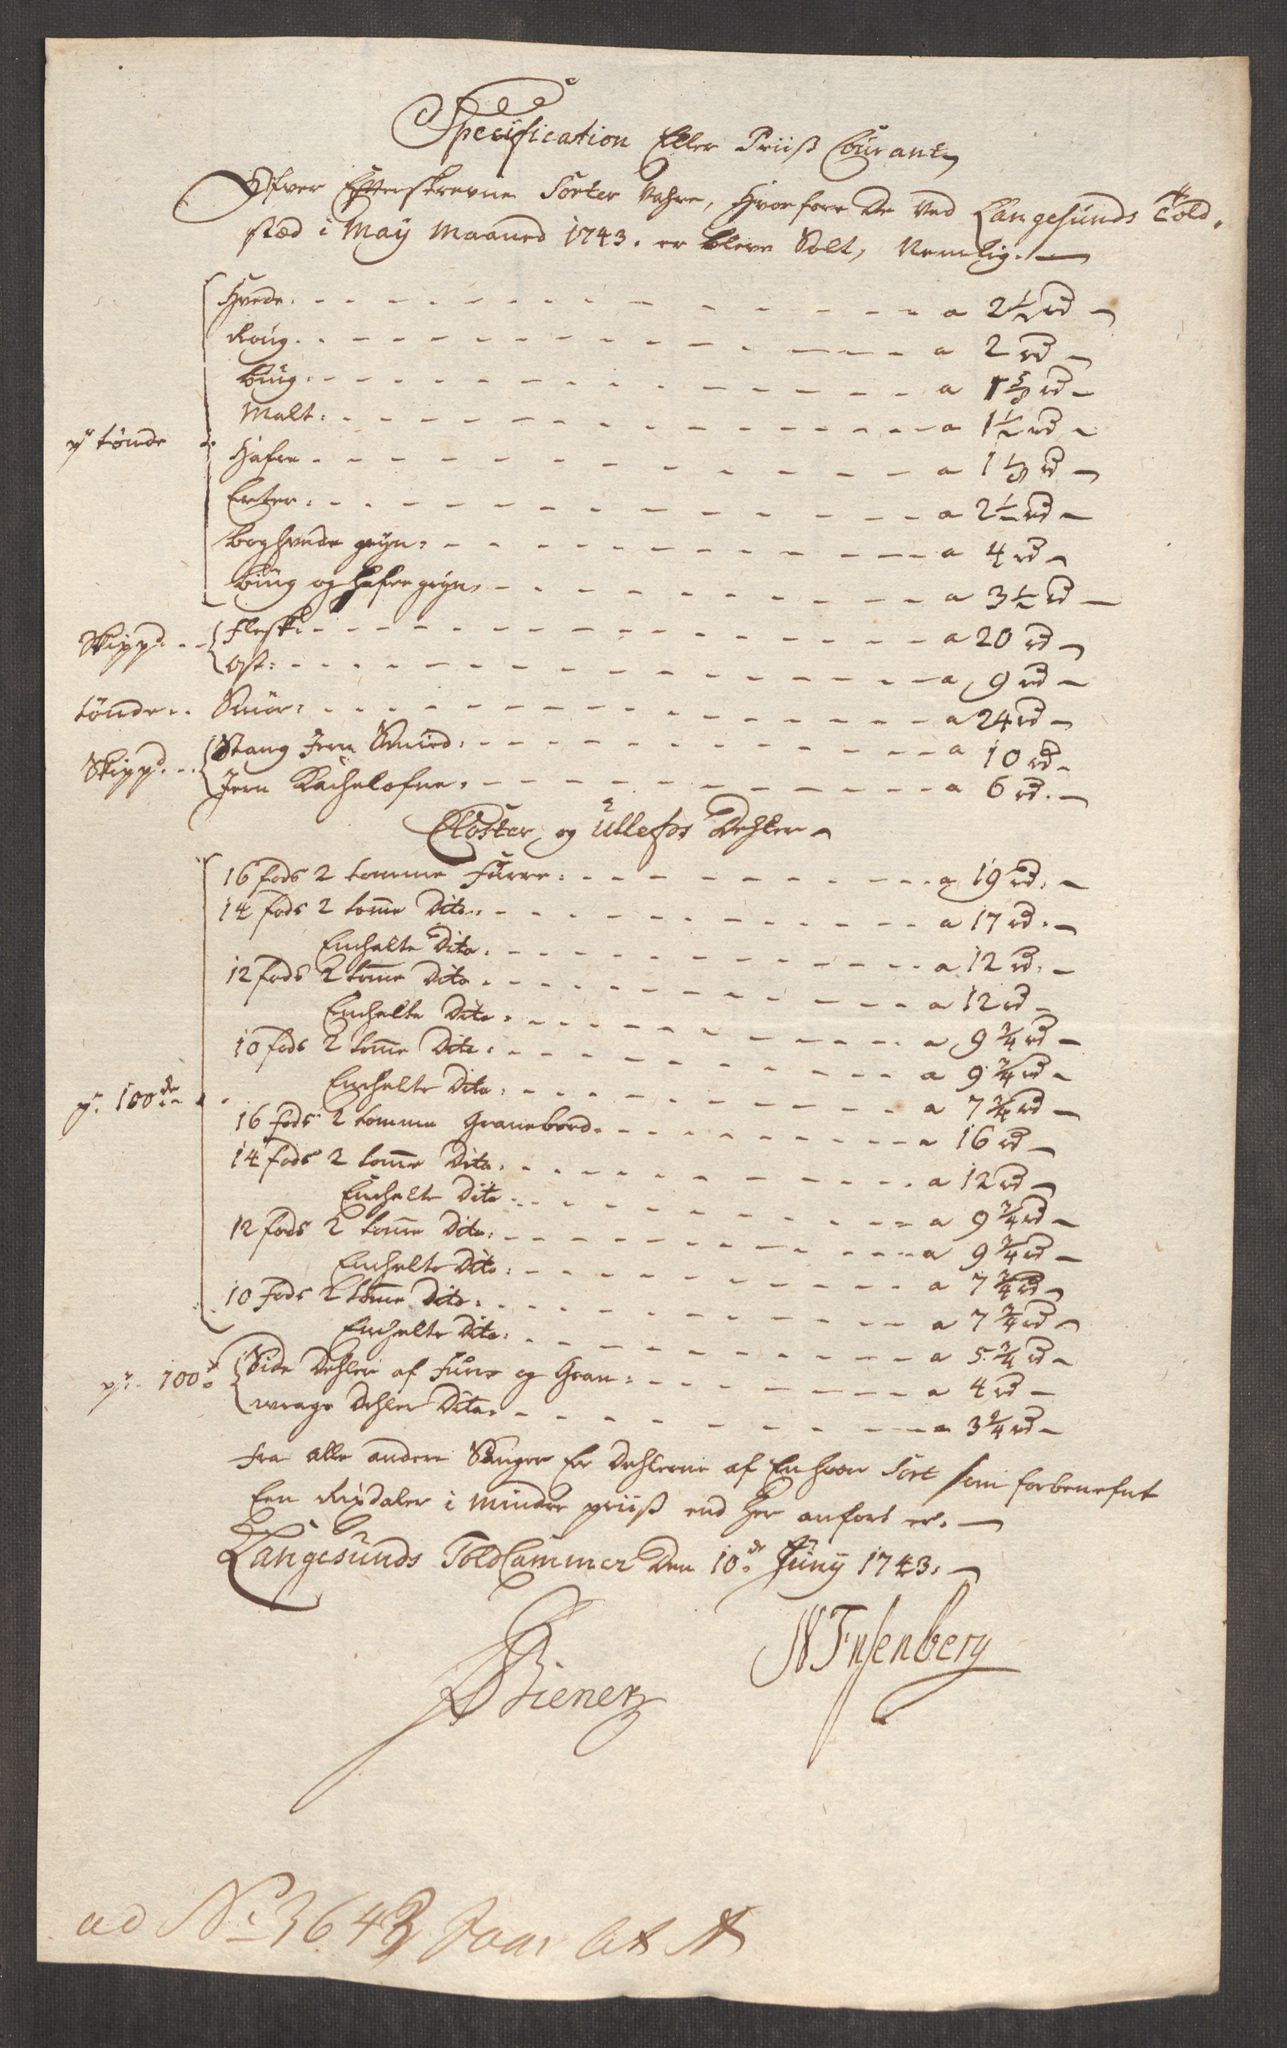 Specification Eller Priiß Courant,
Ofver Efterskrevne Sorter Vahre, Hvorfore De Ved Langesunds Told-
stæd i Maÿ Maaned 1743. er bleve Solt, Nemlig.
Hvede. a 2 1/2 rd
Roug. a 2 rd
bÿg. a 1 2/3 rd
Malt. a 1 1/2 rd
pr tønde
Hafre a 1 1/3 rd
Erter. a 2 1/2 rd
boghvede grÿn. a 4 rd
bÿg og Hafre grÿn. a 3 1/2 rd
Skippd. Flesk. a 20 rd
Ost. a 9 rd
tønde Smør. a 24 rd
Skippd. Stang Jern Smied. a 10 rd
Jern Kachelofne. a 6 rd.
Closter og Ullefos Dehler
16 fods 2 tomme Furre. a 19 rd.
14 fods 2 tomme Dito. a 17 rd.
Enchelte Dito. a 12 rd.
12 fods 2 tomme Dito a 12 rd
Enchelte Dito. a 9 3/4 rd
10 fods 2 tomme Dito. a 9 3/4 rd
Enchelte Dito. a 7 3/4 rd
pr. 100de
16 fods 2 tomme Granebord. a 16 rd
14 fods 2 tomme Dito. a 12 rd
Enchelte Dito a 9 3/4 rd
12 fods 2 tomme Dito. a 9 3/4 rd
Enchelte Dito. a 7 3/4 rd
10 fods 2 tomme Dito. a 7 3/4 rd
Enchelte Dito. a 5 3/4 rd
pr. 100de Side Dehler af Furre og Gran. a 4 rd
wrage Dehler Dito. a 3 1/4 rd
Fra alle andre Sauger Er Dehlerne af Enhver Sort som forbenefnt
Een Rixdaler i Mindre priiß end her anført er.
Langesunds Told Cammer Den 10de Junÿ 1743.
Biener
ad No. 3643 Jaar Lit A